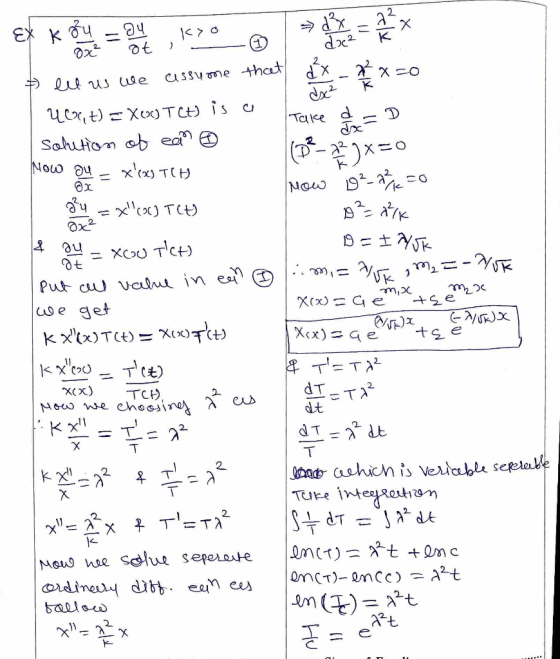 Ex K ∂²u/∂x² = ∂u/∂t , K>0 ——— ①
⇒ let us we assume that
u(x,t) = X(x) T(t) is a
solution of eqn ①
Now ∂u/∂x = X'(x) T(t)
∂²u/∂x² = X''(x) T(t)
& ∂u/∂t = X(x) T'(t)
Put all value in eqn ①
we get
K X''(x) T(t) = X(x) T'(t)
K X''(x)/X(x) = T'(t)/T(t)
Now we choosing λ² as
∴ K X''/X = T'/T = λ²
K X''/X = λ² & T'/T = λ²
X'' = λ²/K X & T' = Tλ²
Now we solve seperate
ordinary diff. eqn as
follow
X'' = λ²/K X
⇒ d²X/dx² = λ²/K X
d²X/dx² - λ²/K X = 0
Take d/dx = D
(D² - λ²/K) X = 0
Now D² - λ²/K = 0
D² = λ²/K
D = ± λ/√K
∴ m₁ = λ/√K , m₂ = -λ/√K
X(x) = C₁ e^m₁x + C₂ e^m₂x
X(x) = C₁ e^(λ/√K)x + C₂ e^(-λ/√K)x
& T' = Tλ²
dT/dt = Tλ²
dT/T = λ² dt
which is veriable seperable
Take integration
∫ 1/T dT = ∫ λ² dt
ln(T) = λ²t + lnc
ln(T) - ln(C) = λ²t
ln(T/C) = λ²t
T/C = e^λ²t